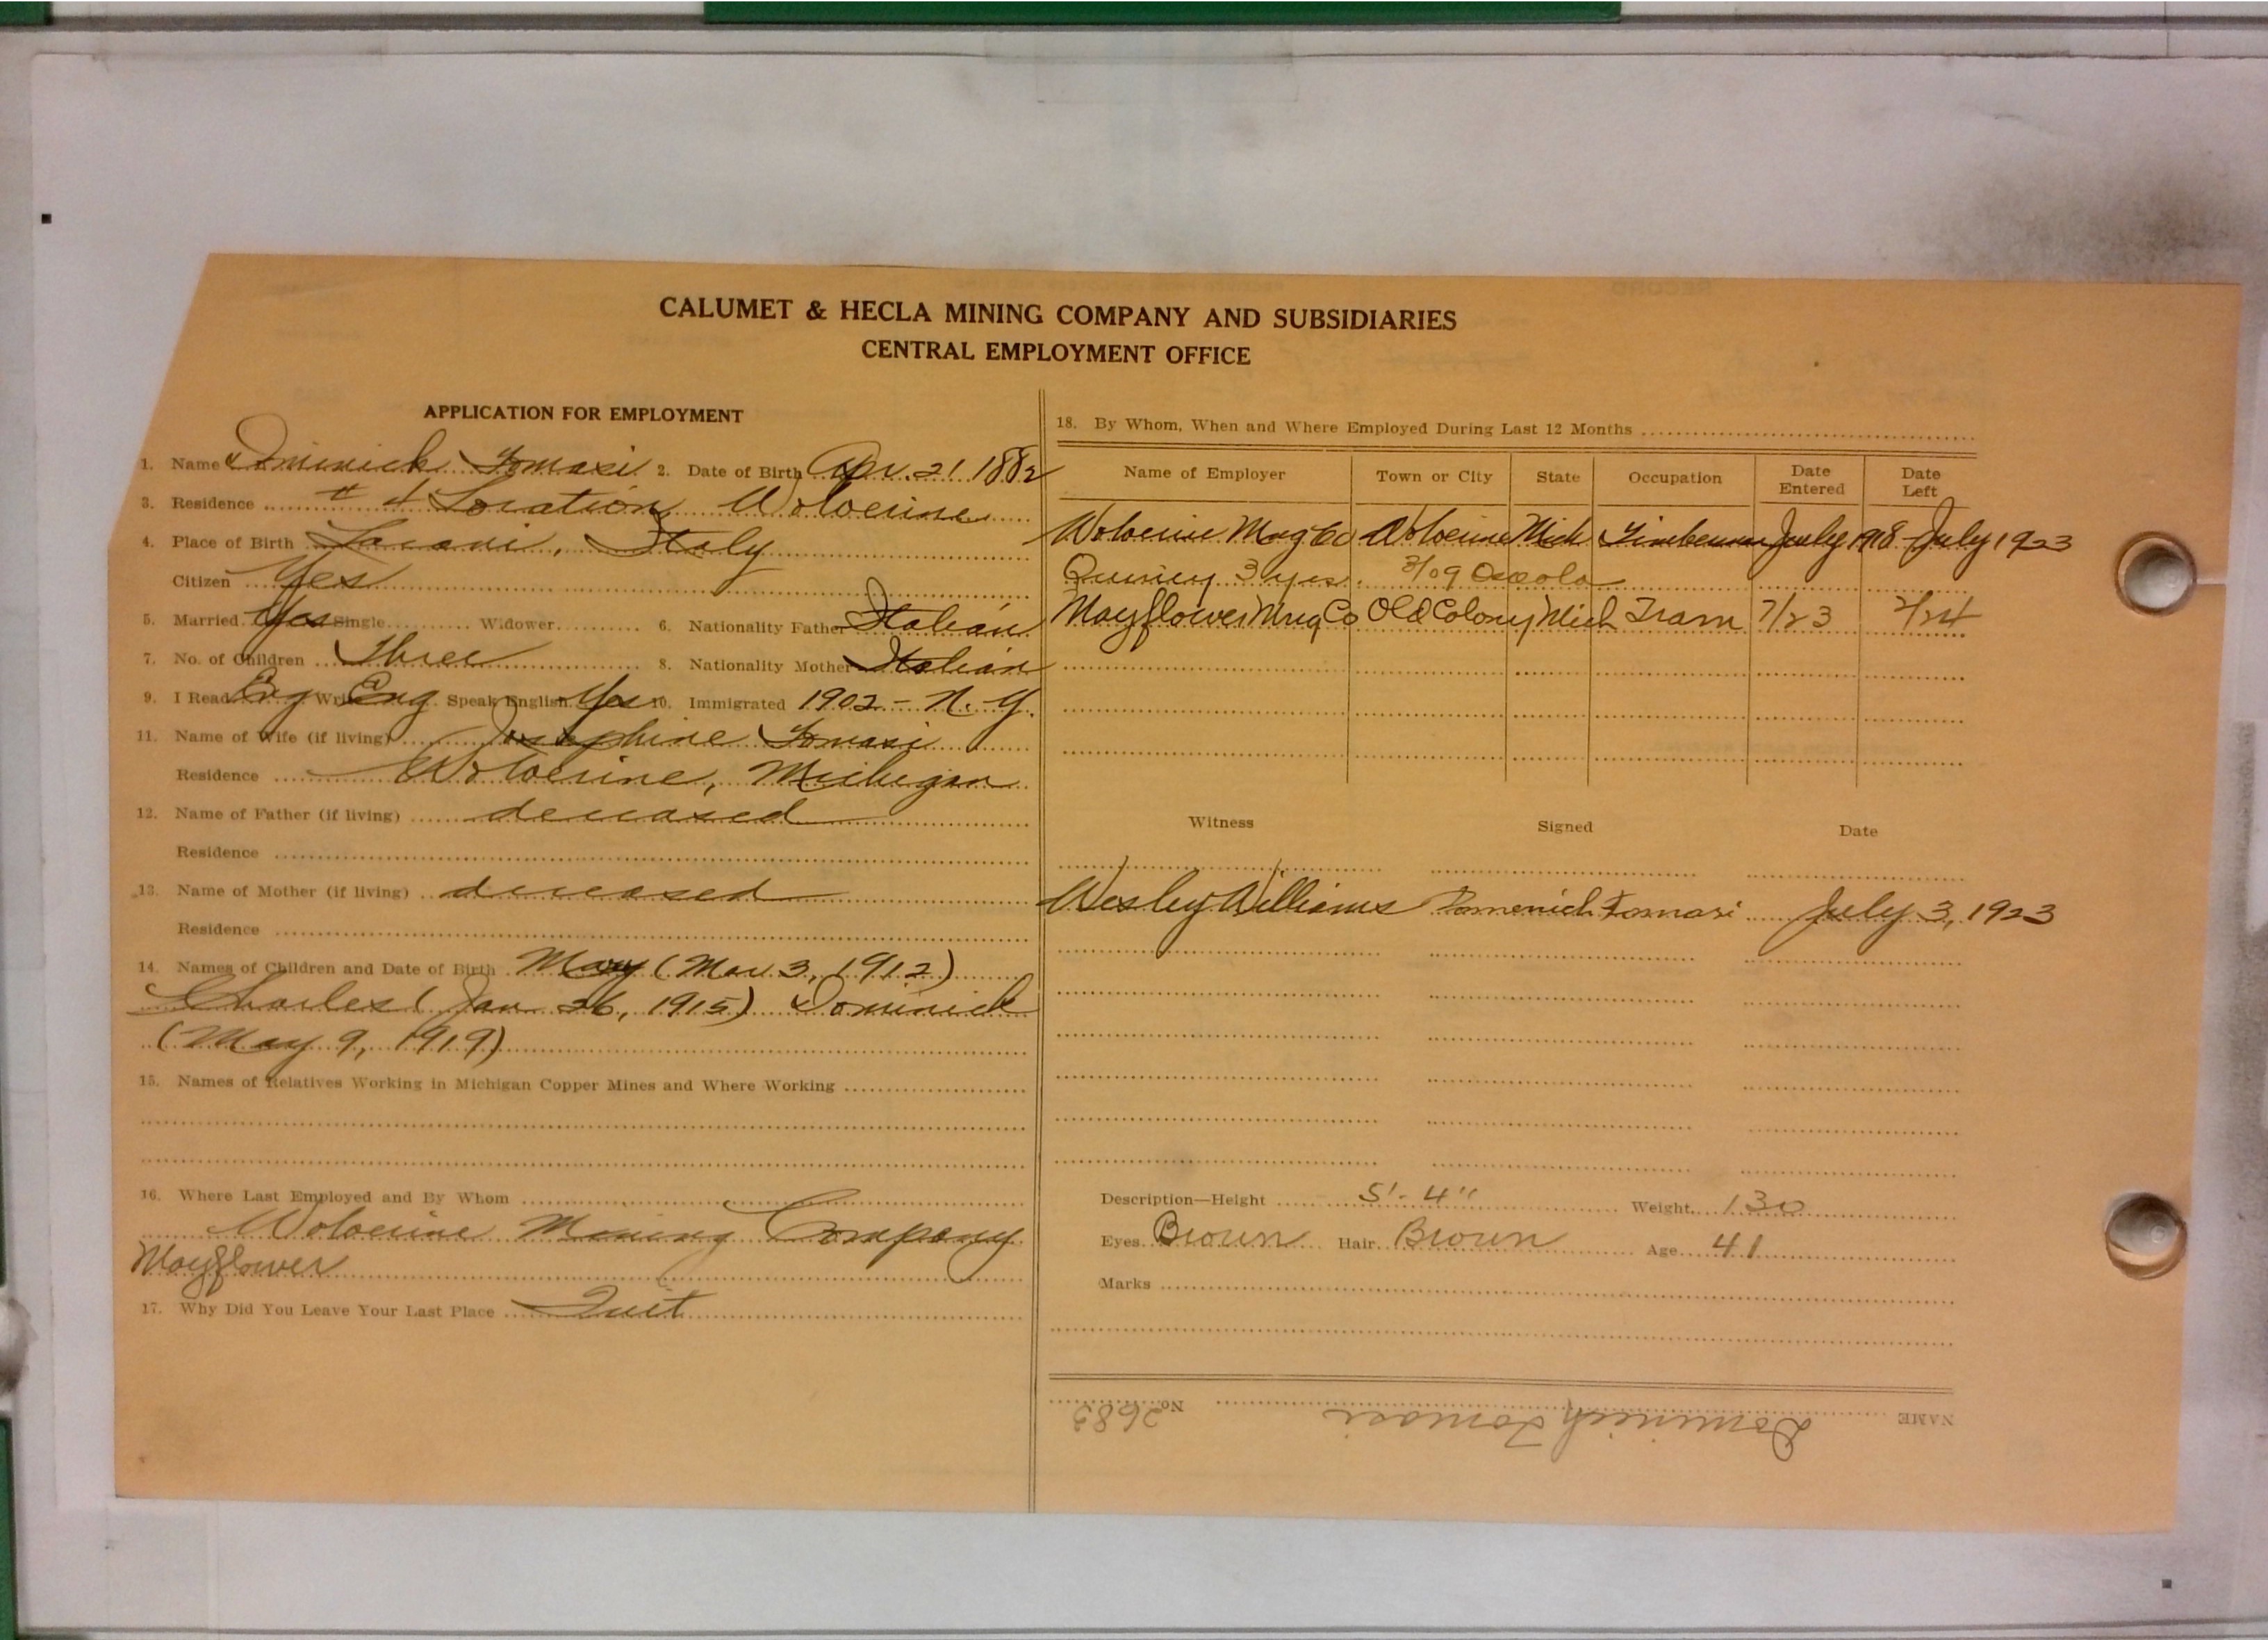 CALUMET & HECLA MINING COMPANY AND SUBSIDIARIES
CENTRAL EMPLOYMENT OFFICE
APPLICATION FOR EMPLOYMENT
1. Name Dominick Tomasi 2. Date of Birth Apr. 21 1882
3. Residence # 4 Location Wolverine
4. Place of Birth Italy
Citizen Yes
5. Married Yes Single Widower 6. Nationality Father Italian
7. No. of Children Three 8. Nationality Mother Italian
9. I Read Eng Write Eng Speak English Yes 10. Immigrated 1902 - N.Y.
11. Name of Wife (if living) Josephine Tomasi
Residence Wolverine, Michigan
12. Name of Father (if living) deceased
Residence
13. Name of Mother (if living) deceased
Residence
14. Names of Children and Date of Birth Mary (Mar. 3, 1912)
Charles (Jan 26, 1915) Dominick
(May 9, 1919)
15. Names of Relatives Working in Michigan Copper Mines and Where Working
16. Where Last Employed and By Whom
Wolverine Mining Company
Mayflower
17. Why Did You Leave Your Last Place Quit
18. By Whom, When and Where Employed During Last 12 Months
Name of Employer Town or City State Occupation Date Entered Date Left
Wolverine Mng Co Wolverine Mich Timberman July 1918 July 1923
Quincy 3 yrs. 3/09 Osceola
Mayflower Mng Co Old Colony Mich Tram 7/23 2/24
Witness Signed Date
Wesley Williams Domenich Tomasi July 3, 1923
Description—Height 5'-4" Weight 130
Eyes Brown Hair Brown Age 41
Marks
NAME Dominick Tomasi No. 2682